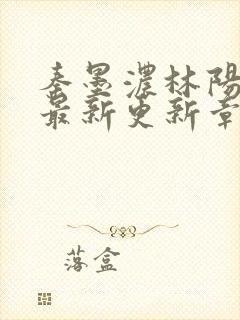 秦墨濃林陽
最新更新章
落盒